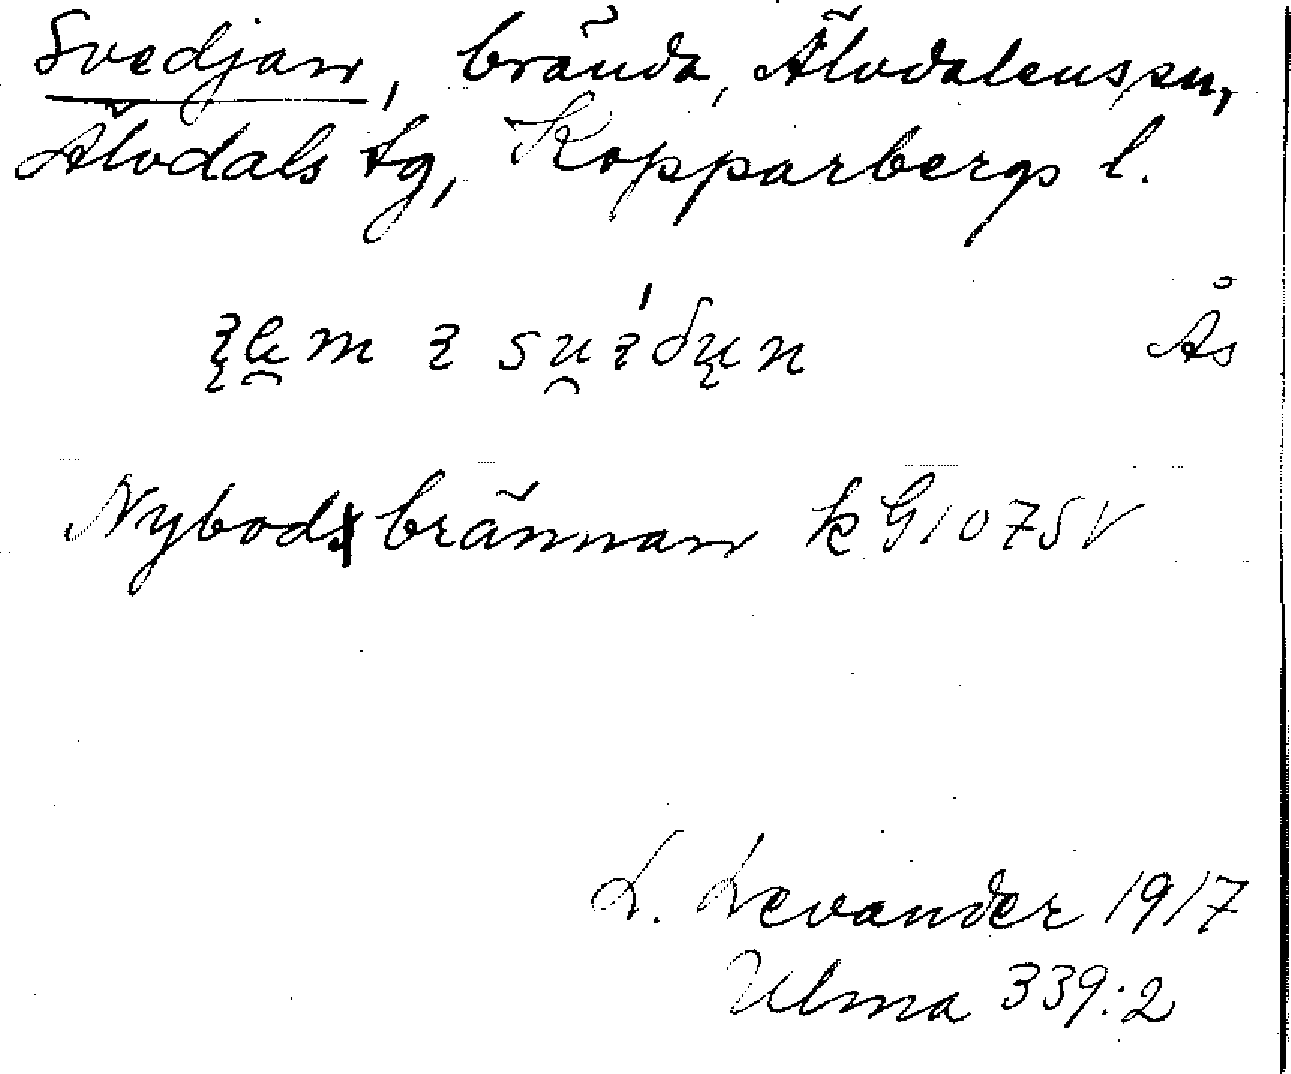 Svedjan, brända, Älvdalens sn,
Älvdals tg, Kopparbergs l.
Ås
Nybods brännan k G1075V
L. Levander 1917
Ulma 339:2